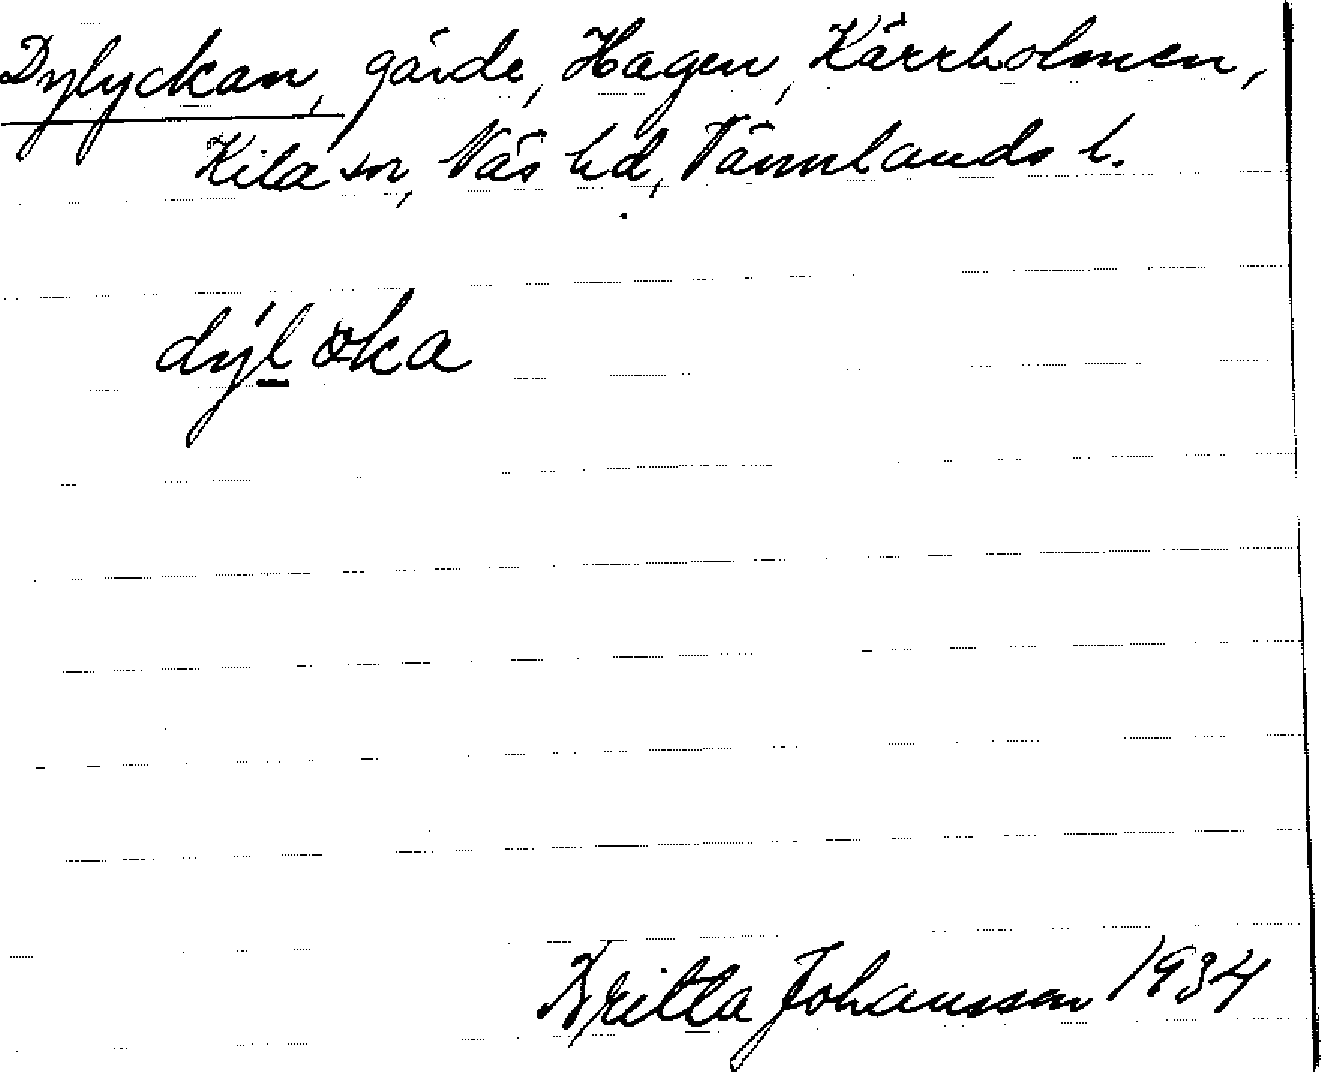 Dylyckan, gärde, Hagen, Kärrholmen,
Kila sn, Näs hd, Värmlands l.
dýløka
Britta Johansson 1934